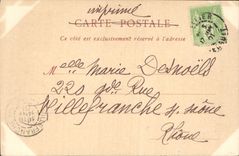 imprimé
CARTE POSTALE
Ce côté est exclusivement réservé à l'adresse
Melle Marie Desnoëls
220 gde Rue
Villefranche s/ Saône
Rhône